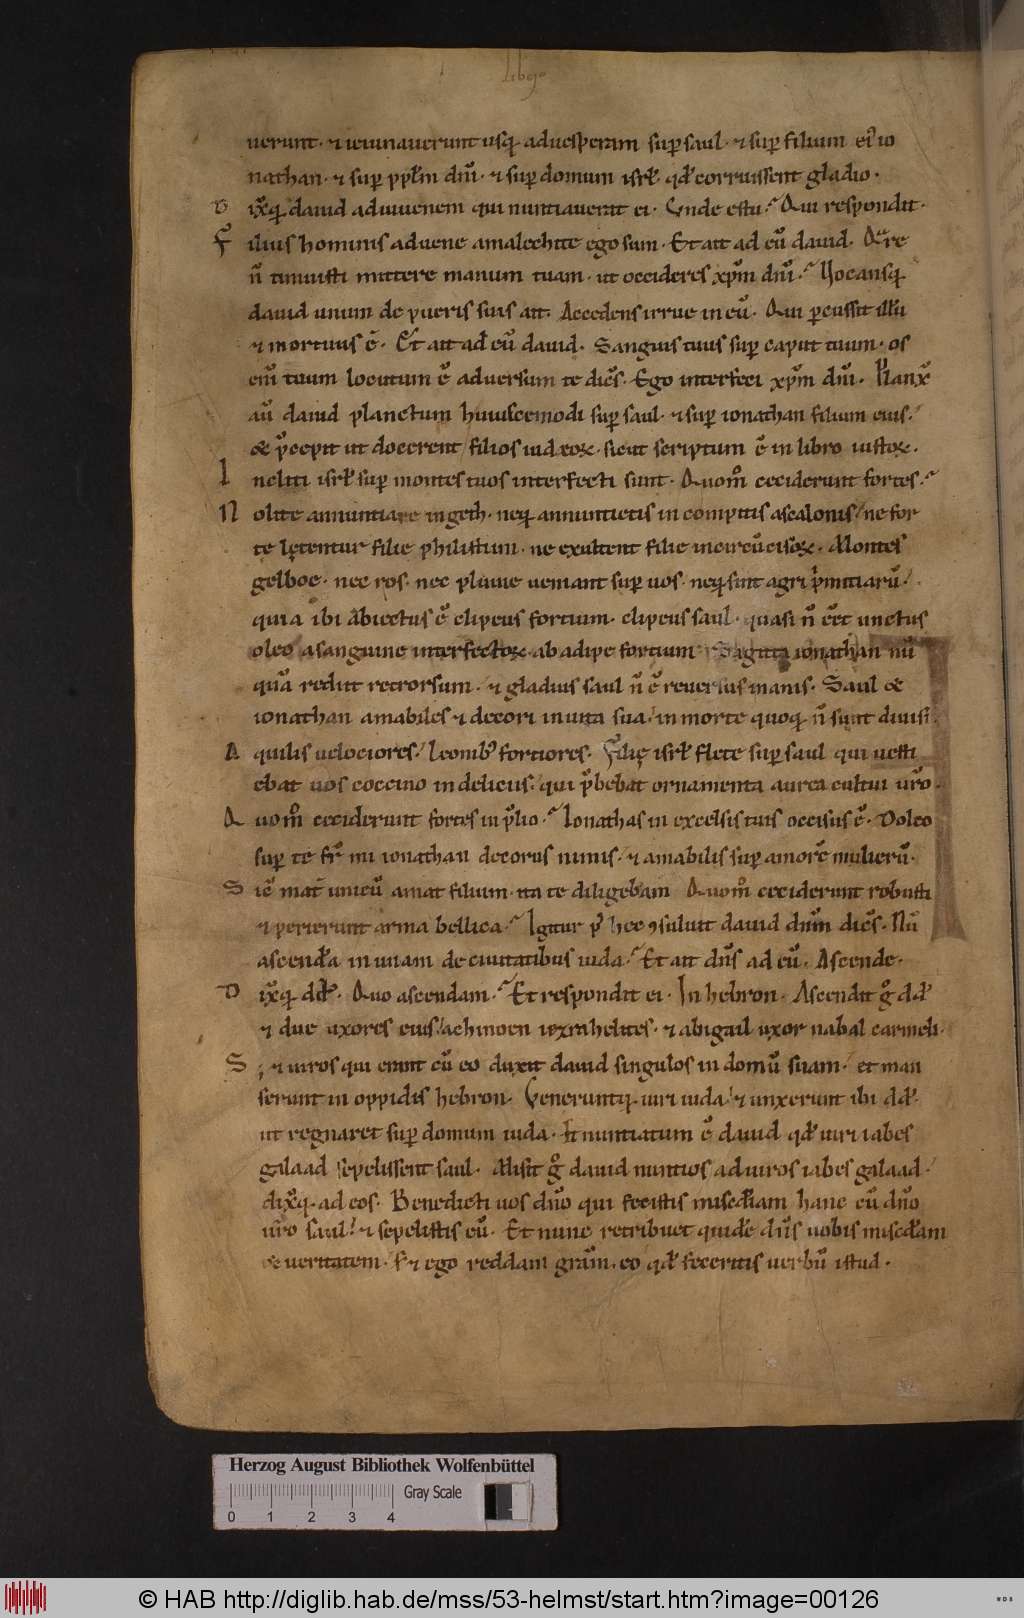 liber
uerunt · ⁊ ieiunauerunt usq; aduesperam sup̱ saul · ⁊ sup̱ filium ei᷒ io
nathan · ⁊ sup̱ ppl̄m dn̄i · ⁊ sup̱ domum isrl̄ · qd̄ corruissent gladio ·
Dix̄q; dauid ad iuuenem qui nuntiauerat ei · Unde es tu? Qui respondit ·
Filius hominis aduene amalechite ego sum · Et ait ad eū dauid · Quare
n̄ timuisti mittere manum tuam · ut occideres xp̄m dn̄i? Uocansq;
dauid unum de pueris suis ait · Accedens irrue in eū · Qui ꝑcussit illū
⁊ mortuus ē · Et ait ad eū dauid · Sanguis tuus sup̱ caput tuum · os
enī tuum locutum ē aduersum te dicēs · Ego interfeci xp̄m dn̄i · Planx̄
aū dauid planctum huiuscemodi sup̱ saul · ⁊ sup̱ ionathan filium eius ·
& p̄cepit ut docerent filios iudeoꝝ · sicut scriptum ē in libro iustoꝝ ·
Incliti isrl̄ sup̱ montes tuos interfecti sunt · Quom̊ ceciderunt fortes?
Nolite annuntiare in geth · neq; annuntietis in compitis ascalonis / ne for
te lętentur filie philistium · ne exultent filie incircūcisoꝝ · Montes
gelboe · nec ros · nec pluuie ueniant sup̱ uos · neq; sint agri p̲̍mitiarū ·
quia ibi abiectus ē clipeus fortium · clipeus saul · quasi n̄ eēt unctus
oleo a sanguine interfectoꝝ · ab adipe fortium Sagitta ionathan nū
quā rediit retrorsum · ⁊ gladius saul n̄ ē reuersus inanis · Saul &
ionathan amabiles ⁊ decori in uita sua / in morte quoq; n̄ sunt diuisi ·
Aquilis uelociores / leonib᷒ fortiores · Filię isrl̄ flete sup̱ saul qui uesti
ebat uos coccino in deliciis · qui p̄bebat ornamenta aurea cultui ur̄o ·
Quom̊ ceciderunt fortes in p̄lio? Ionathas in excelsis tuis occisus ē · Doleo
sup̱ te fr̄ mi ionathan decorus nimis · ⁊ amabilis sup̱ amorē mulierū ·
Sic̄ mat̄ unicū amat filium · ita te diligebam Quom̊ ceciderunt robusti
⁊ perierunt arma bellica? Igitur p᷒ hec ꝯsuluit dauid dn̄m dicēs · Nū
ascendā in unam de ciuitatibus iuda? Et ait dn̄s ad eū · Ascende ·
Dix̄q; dd̄ · Quo ascendam? Et respondit ei · In hebron · Ascendit g̊ dd̄
⁊ due uxores eius / achinoen iezrahelites · ⁊ abigail uxor nabal carmeli ·
S; ⁊ uiros qui erant cū eo duxit dauid singulos in domū suam / et man
serunt in oppidis hebron · Ueneruntq; uiri iuda / ⁊ unxerunt ibi dd̄ ·
ut regnaret sup̱ domum iuda · Et nuntiatum ē dauid qd̄ uiri iabes
galaad sepelissent saul · Misit g̊ dauid nuntios ad uiros iabes galaad /
dix̄q; ad eos · Benedicti uos dn̄o qui fecistis misc̄diam hanc cū dn̄o
ur̄o saul / ⁊ sepelistis eū · Et nunc retribuet quidē dn̄s uobis misc̄dam
& ueritatem · S; ⁊ ego reddam grām · eo qd̄ feceritis uerbū istud ·
Herzog August Bibliothek Wolfenbüttel
Gray Scale
0 1 2 3 4
© HAB http://diglib.hab.de/mss/53-helmst/start.htm?image=00126